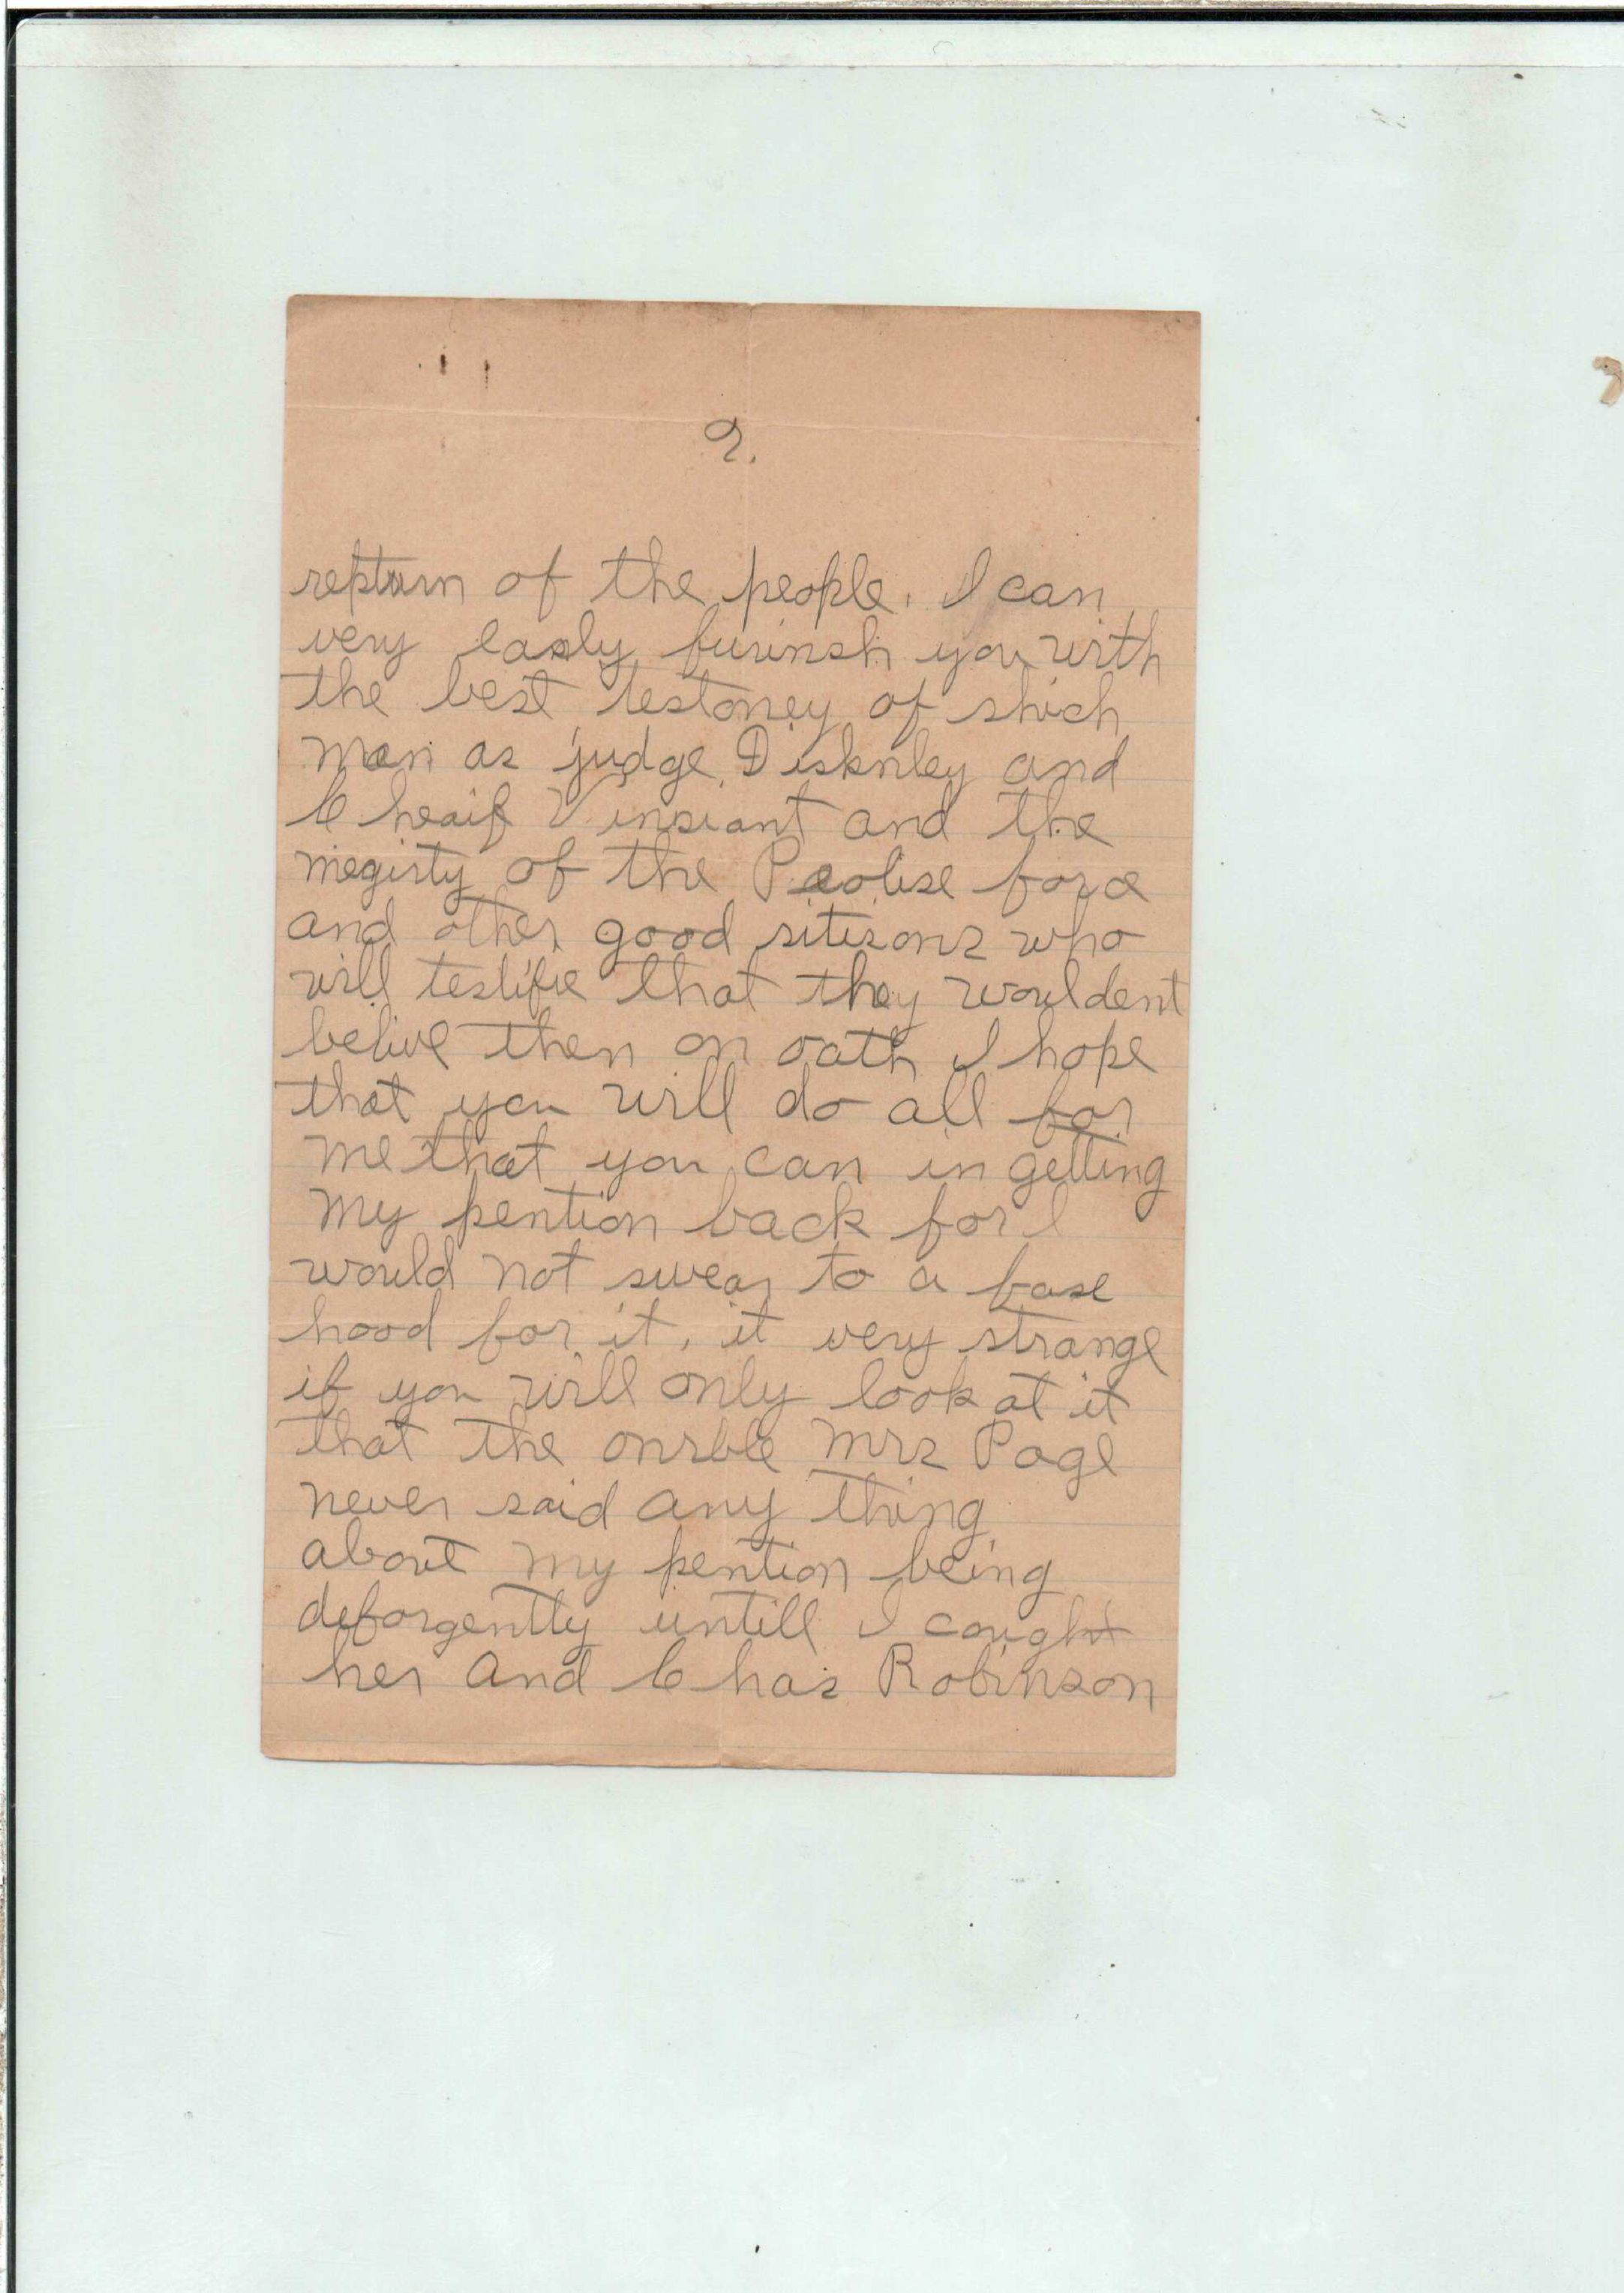 2.
repturn of the people. I can
very easly furinsh you with
the best testoney of shich
men as judge Disknley and
Cheaif Vinsiant and the
megirty of the Peolise force
and other good sitesons who
will testifie that they wouldent
belive then on oath I hope
that you will do all for
me that you can in getting
my pention back for I
would not swear to a fase
hood for it, it very strange
if you will only look at it
that the onrble Mrs Page
never said any thing
about my pention being
deforgently untill I cought
her and Chas Robinson